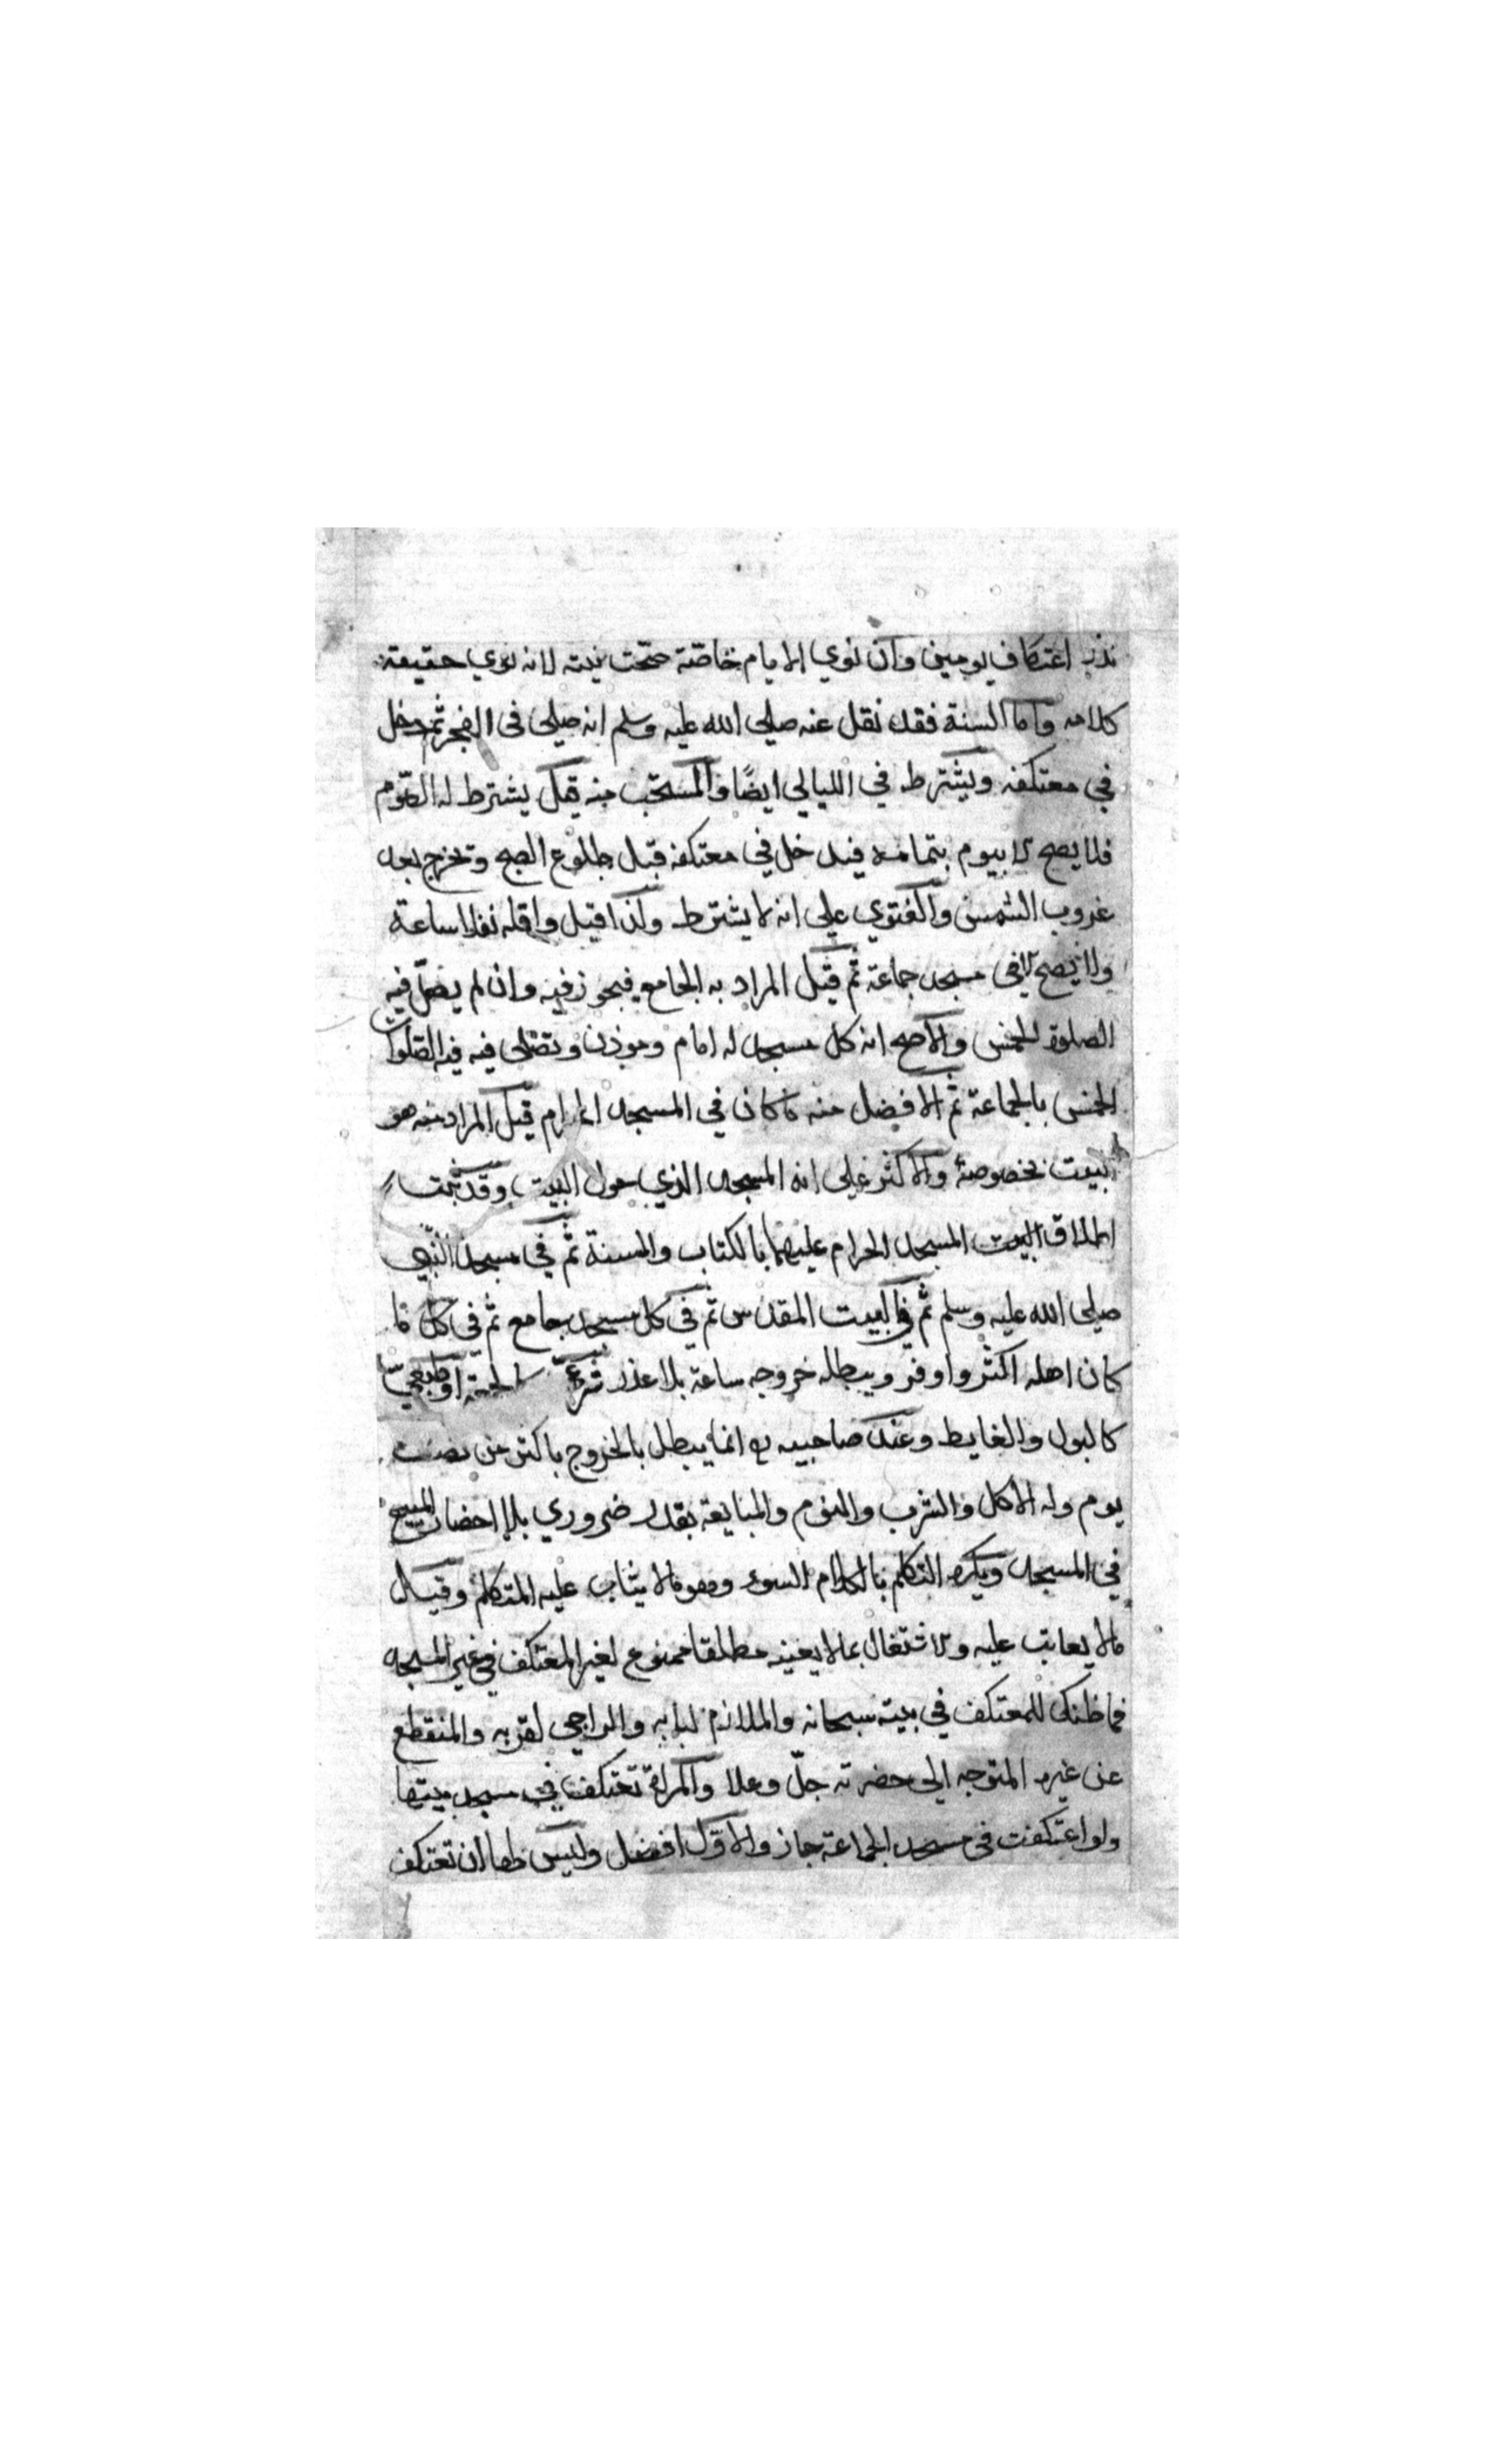 نذر اعتكاف يومين وان نوي الايام خاصّة صحّت نيته لانه نوي حقيقة
كلامه واما السنة فقد نقل عنه صلى الله عليه وسلم انه صلى في الفجر ثم دخل
في معتكفه ويشترط في الليالي ايضًا والمستحب منه قيل يشترط له الصّوم
فلا يصح الا بيوم بتمامه فيدخل في معتكفه قبل طلوع الصبح وتخرج بعد
غروب الشمس والفتوي علي انه لا يشترط ولذا قيل واقله نفلا ساعة
ولا يصح الا في مسجد جماعة ثم قيل المراد به الجامع فيجوز فيه وان لم يصلّ فيه
الصلوة الخمس والاصح انه كل مسجد له امام وموذن وتصلى فيه فيه الصّلوات
الخمس بالجماعة ثم الافضل منه ما كان في المسجد الحرام قيل المراد منه هو
البيت بخصوصه والاكثر علي انه المسجد الذي حول البيت وقد ثبت
اطلاق البيت المسجد الحرام عليهما بالكتاب والسنة ثم في مسجد النّبي
صلى الله عليه وسلم ثم في البيت المقدس ثم في كل مسجد جامع ثم في كل ما
كان اهله اكثر واوفر ويبطله خروجه ساعة بلا عذر شرعيّ او طبعيّ
كالبول والغايط وعند صاحبيه انما يبطل بالخروج باكثر من نصف
يوم وله الاكل والشرب والنوم والمبايعة بقدر ضروري بلا احضار المبيع
في المسجد ويكره التكلم بالكلام السوء وهو ما لا يثاب عليه المتكلم وقيل
ما لا يعاتب عليه والاشتغال بما لا يعينه مطلقا ممنوع لغير المعتكف في غير المسجد
فما ظنك للمعتكف في بيته سبحانه والملازم لبابه والراجي لقربه والمنقطع
عن غيره المتوجه الى حضرته جلّ وعلا والمراة تعتكف في مسجد بيتها
ولو اعتكفت في مسجد الجماعة جاز والاوّل افضل وليس لها ان تعتكف